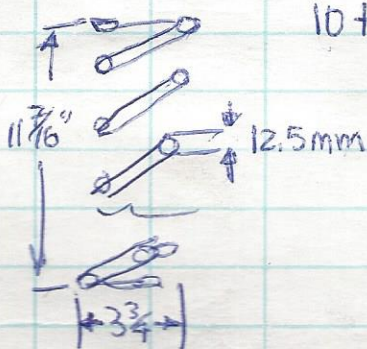 11 7/16"
12.5mm
3 3/4